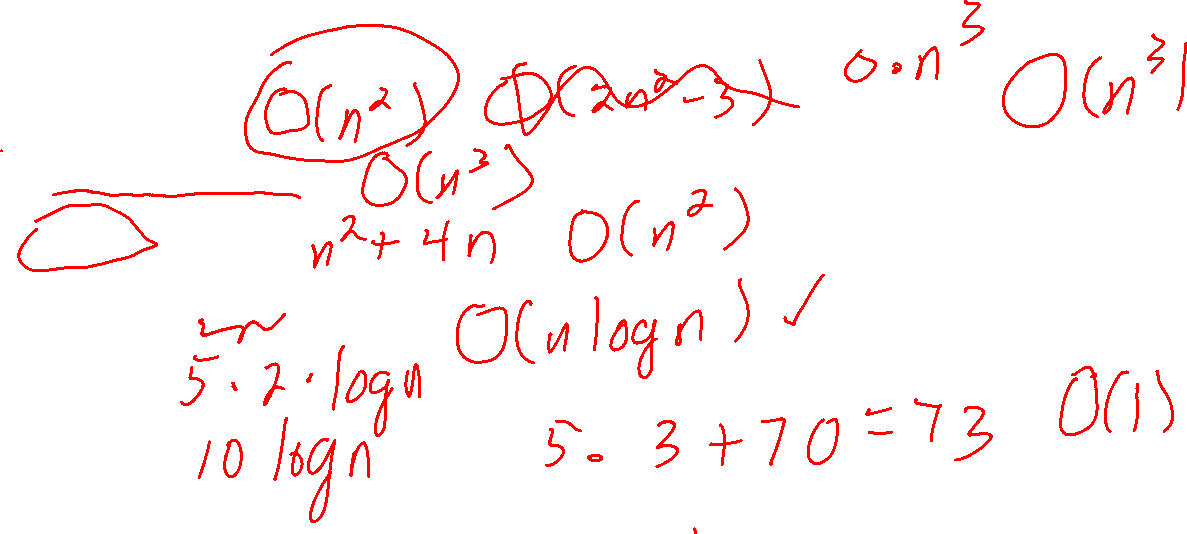 O(n²) O(2n²-3) 0·n³ O(n³)
O(n³)
n²+4n O(n²)
O(n log n) ✓
5·2·log n
10 log n 5·3+70=73 O(1)